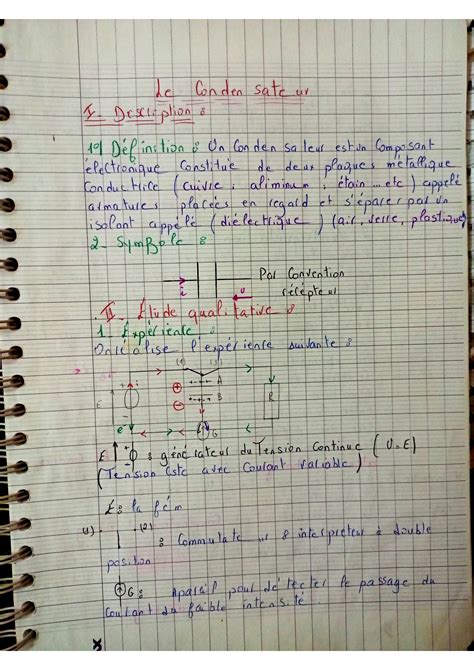 Le Condensateur
I- Description :
1°/ Définition : Un Condensateur est un Composant
électronique Constitue de deux plaques métallique
Conductrice (cuivre, aliminum, étain ... etc) appelé
armatures placées en regard et séparés par un
isolant appélé (diélectrique) (air, verre, plastique)
2- Symbole :
i
u
Par Convention
récépteur
II- Étude qualitative :
1. Expérience :
On réalise l'expérience suivante :
(1) (2)
E
i
A
B
R
e-
G
E : générateur du Tension Continue (U=E)
(Tension cste avec Courant variable)
E : la fém
(1) (2)
: Commutateur : interrupteur à double
position
G : Appareil pour détecter le passage du
Courant du faible intensité.